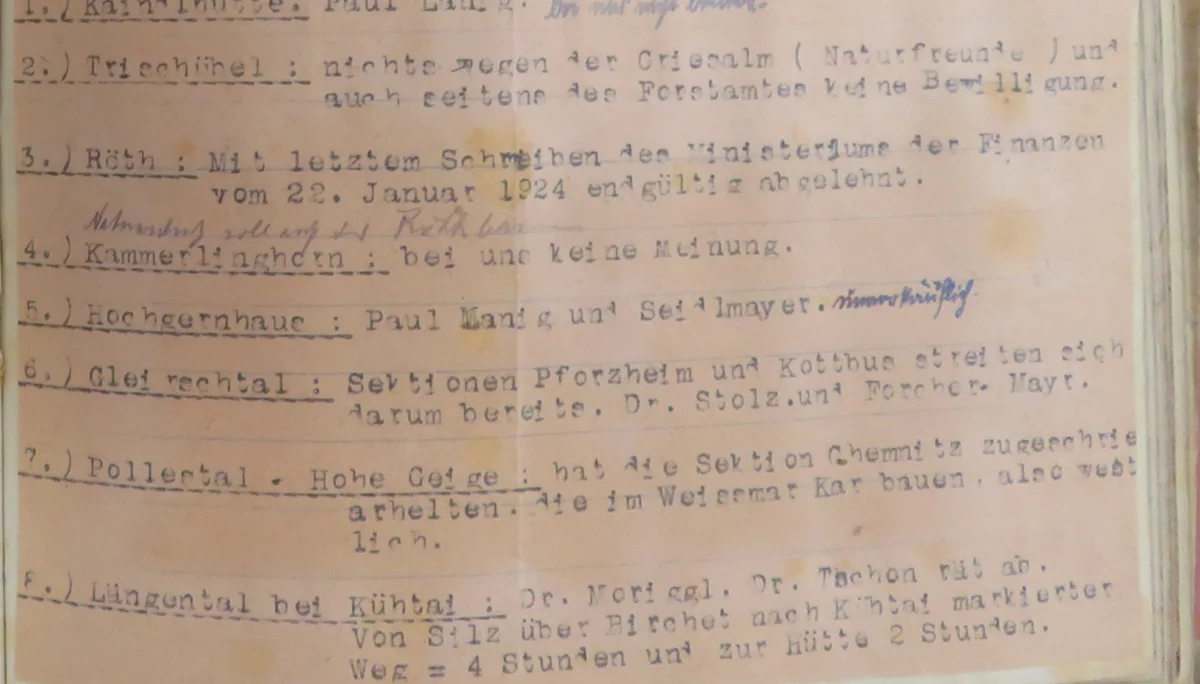 2.) Trischübel : nichts wegen der Griesalm ( Naturfreunde ) und
auch seitens des Forstamtes keine Bewilligung.
3.) Röth : Mit letztem Schreiben des Ministeriums der Finanzen
vom 22. Januar 1924 endgültig abgelehnt.
soll auf der Röth
4.) Kammerlinghorn : bei uns keine Meinung.
5.) Hochgernhaus : Paul Manig und Seidlmayer. unverkäuflich.
6.) Gleirschtal : Sektionen Pforzheim und Kottbus streiten sich
darum bereits. Dr. Stolz.und Forcher- Mayr.
7.) Pollestal - Hohe Geige : hat die Sektion Chemnitz zugeschrie
arhelten. die im Weissmar Kar bauen, also west
lich.
8.) Längental bei Kühtai : Dr. Moriggl. Dr. Tschon rät ab.
Von Silz über Birchet nach Kühtai markierter
Weg = 4 Stunden und zur Hütte 2 Stunden.